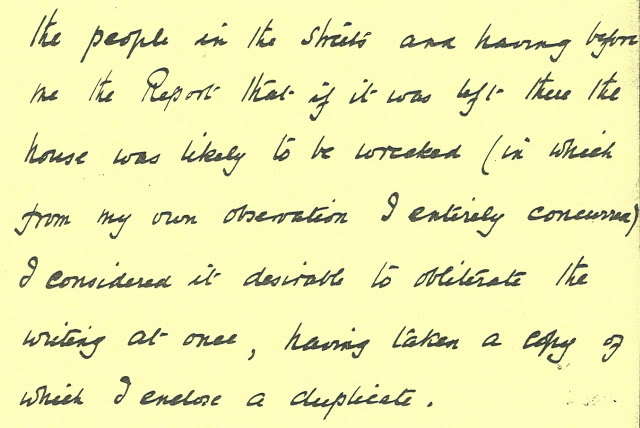 the people in the streets and having before
me the Report that if it was left there the
house was likely to be wrecked (in which
from my own observation I entirely concurred)
I considered it desirable to obliterate the
writing at once, having taken a copy of
which I enclose a duplicate.